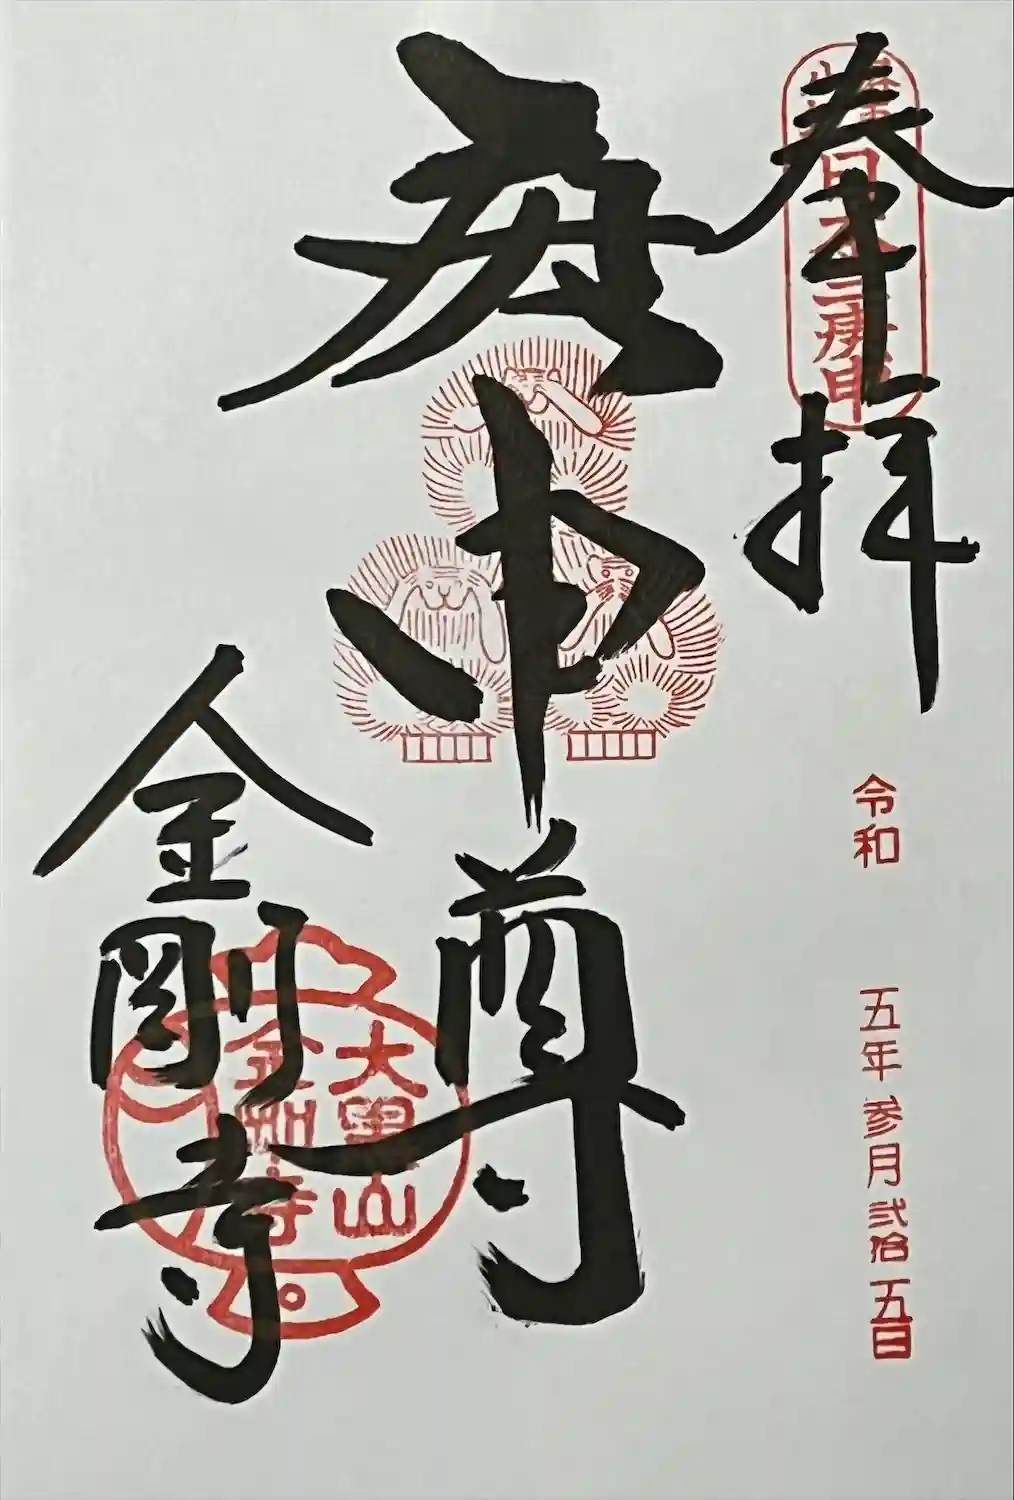 奉拝
日本三庚申
令和 五年 参月 弐拾五日
庚申尊
金剛寺
大黒山
金剛寺